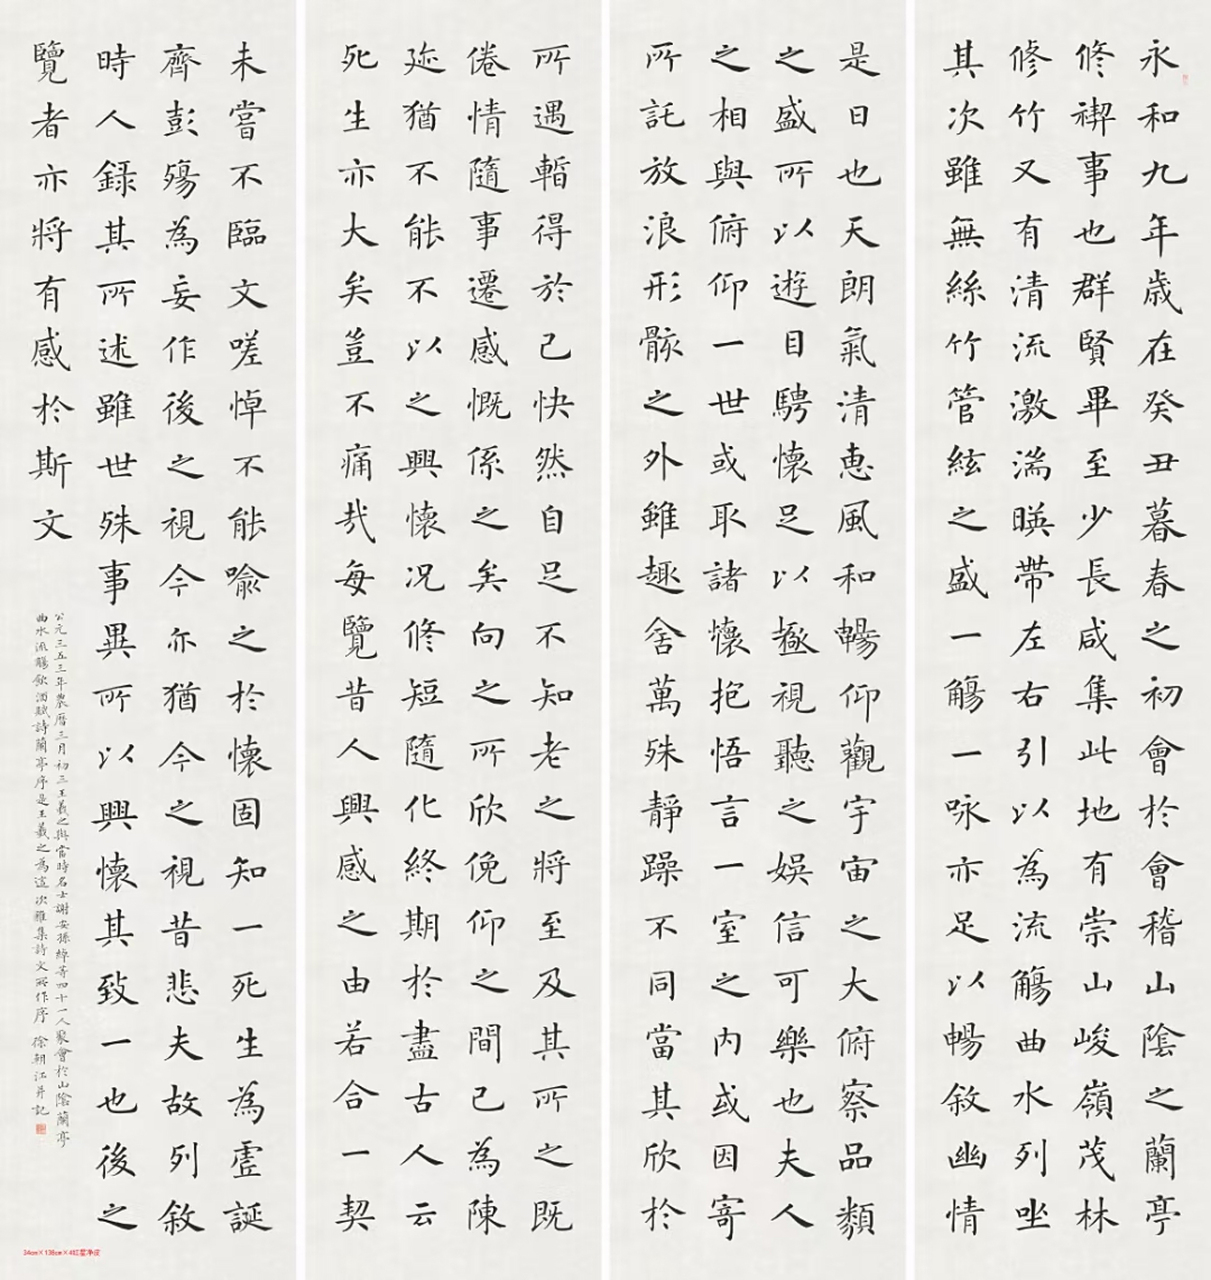 永和九年歲在癸丑暮春之初會於會稽山陰之蘭亭
修禊事也群賢畢至少長咸集此地有崇山峻嶺茂林
修竹又有清流激湍暎帶左右引以為流觴曲水列坐
其次雖無絲竹管絃之盛一觴一咏亦足以暢敘幽情
是日也天朗氣清惠風和暢仰觀宇宙之大俯察品類
之盛所以遊目騁懷足以極視聽之娛信可樂也夫人
之相與俯仰一世或取諸懷抱悟言一室之內或因寄
所託放浪形骸之外雖趣舍萬殊靜躁不同當其欣於
所遇暫得於己快然自足不知老之將至及其所之既
倦情隨事遷感慨係之矣向之所欣俛仰之間已為陳
迹猶不能不以之興懷况修短隨化終期於盡古人云
死生亦大矣豈不痛哉每覽昔人興感之由若合一契
未嘗不臨文嗟悼不能喻之於懷固知一死生為虛誕
齊彭殤為妄作後之視今亦猶今之視昔悲夫故列敘
時人錄其所述雖世殊事異所以興懷其致一也後之
覽者亦將有感於斯文
公元三五三年農曆三月初三王羲之與當時名士謝安孫綽等四十一人聚會於山陰蘭亭
曲水流觴飲酒賦詩蘭亭序是王羲之為這次雅集詩文所作序 徐朝江并記
34cm×138cm×4红星净皮